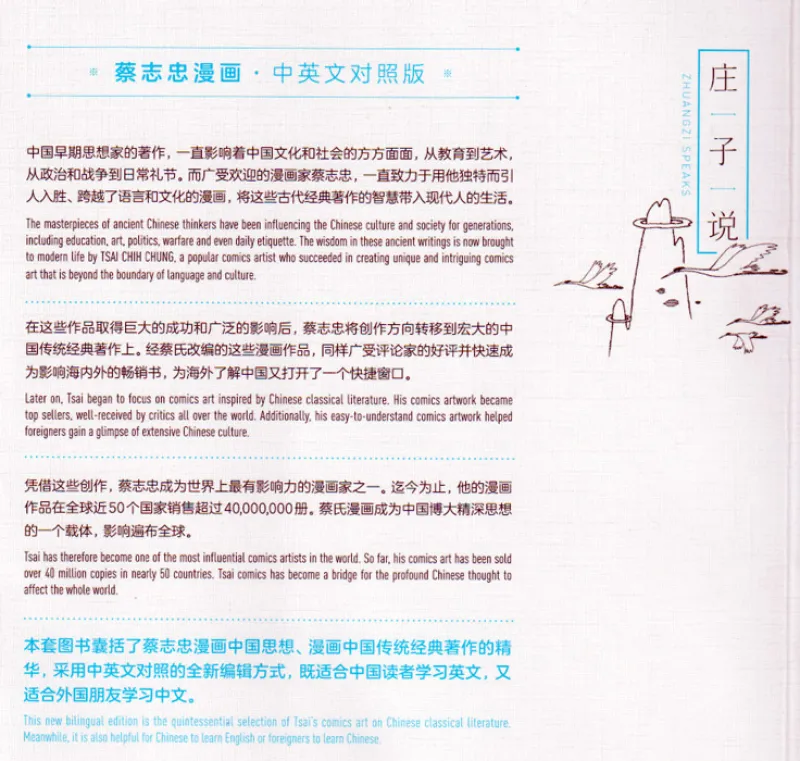 ※ 蔡志忠漫画·中英文对照版 ※
中国早期思想家的著作，一直影响着中国文化和社会的方方面面，从教育到艺术，
从政治和战争到日常礼节。而广受欢迎的漫画家蔡志忠，一直致力于用他独特而引
人入胜、跨越了语言和文化的漫画，将这些古代经典著作的智慧带入现代人的生活。
The masterpieces of ancient Chinese thinkers have been influencing the Chinese culture and society for generations,
including education, art, politics, warfare and even daily etiquette. The wisdom in these ancient writings is now brought
to modern life by TSAI CHIH CHUNG, a popular comics artist who succeeded in creating unique and intriguing comics
art that is beyond the boundary of language and culture.
在这些作品取得巨大的成功和广泛的影响后，蔡志忠将创作方向转移到宏大的中
国传统经典著作上。经蔡氏改编的这些漫画作品，同样广受评论家的好评并快速成
为影响海内外的畅销书，为海外了解中国又打开了一个快捷窗口。
Later on, Tsai began to focus on comics art inspired by Chinese classical literature. His comics artwork became
top sellers, well-received by critics all over the world. Additionally, his easy-to-understand comics artwork helped
foreigners gain a glimpse of extensive Chinese culture.
凭借这些创作，蔡志忠成为世界上最有影响力的漫画家之一。迄今为止，他的漫画
作品在全球近50个国家销售超过40,000,000册。蔡氏漫画成为中国博大精深思想
的一个载体，影响遍布全球。
Tsai has therefore become one of the most influential comics artists in the world. So far, his comics art has been sold
over 40 million copies in nearly 50 countries. Tsai comics has become a bridge for the profound Chinese thought to
affect the whole world.
本套图书囊括了蔡志忠漫画中国思想、漫画中国传统经典著作的精
华，采用中英文对照的全新编辑方式，既适合中国读者学习英文，又
适合外国朋友学习中文。
This new bilingual edition is the quintessential selection of Tsai's comics art on Chinese classical literature.
Meanwhile, it is also helpful for Chinese to learn English or foreigners to learn Chinese.
庄子说
ZHUANGZI SPEAKS